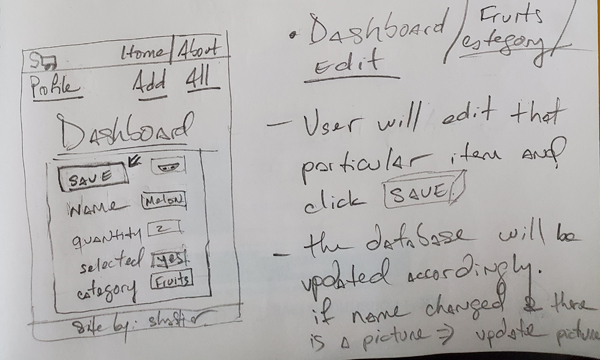 Home | About
Profile Add All
Dashboard
SAVE
Name Melon
quantity 2
selected yes
category Fruits
Site by:
• Dashboard / Fruits
Edit category /
- User will edit that
particular item and
click SAVE
- the database will be
updated accordingly.
if name changed & there
is a picture => update picture